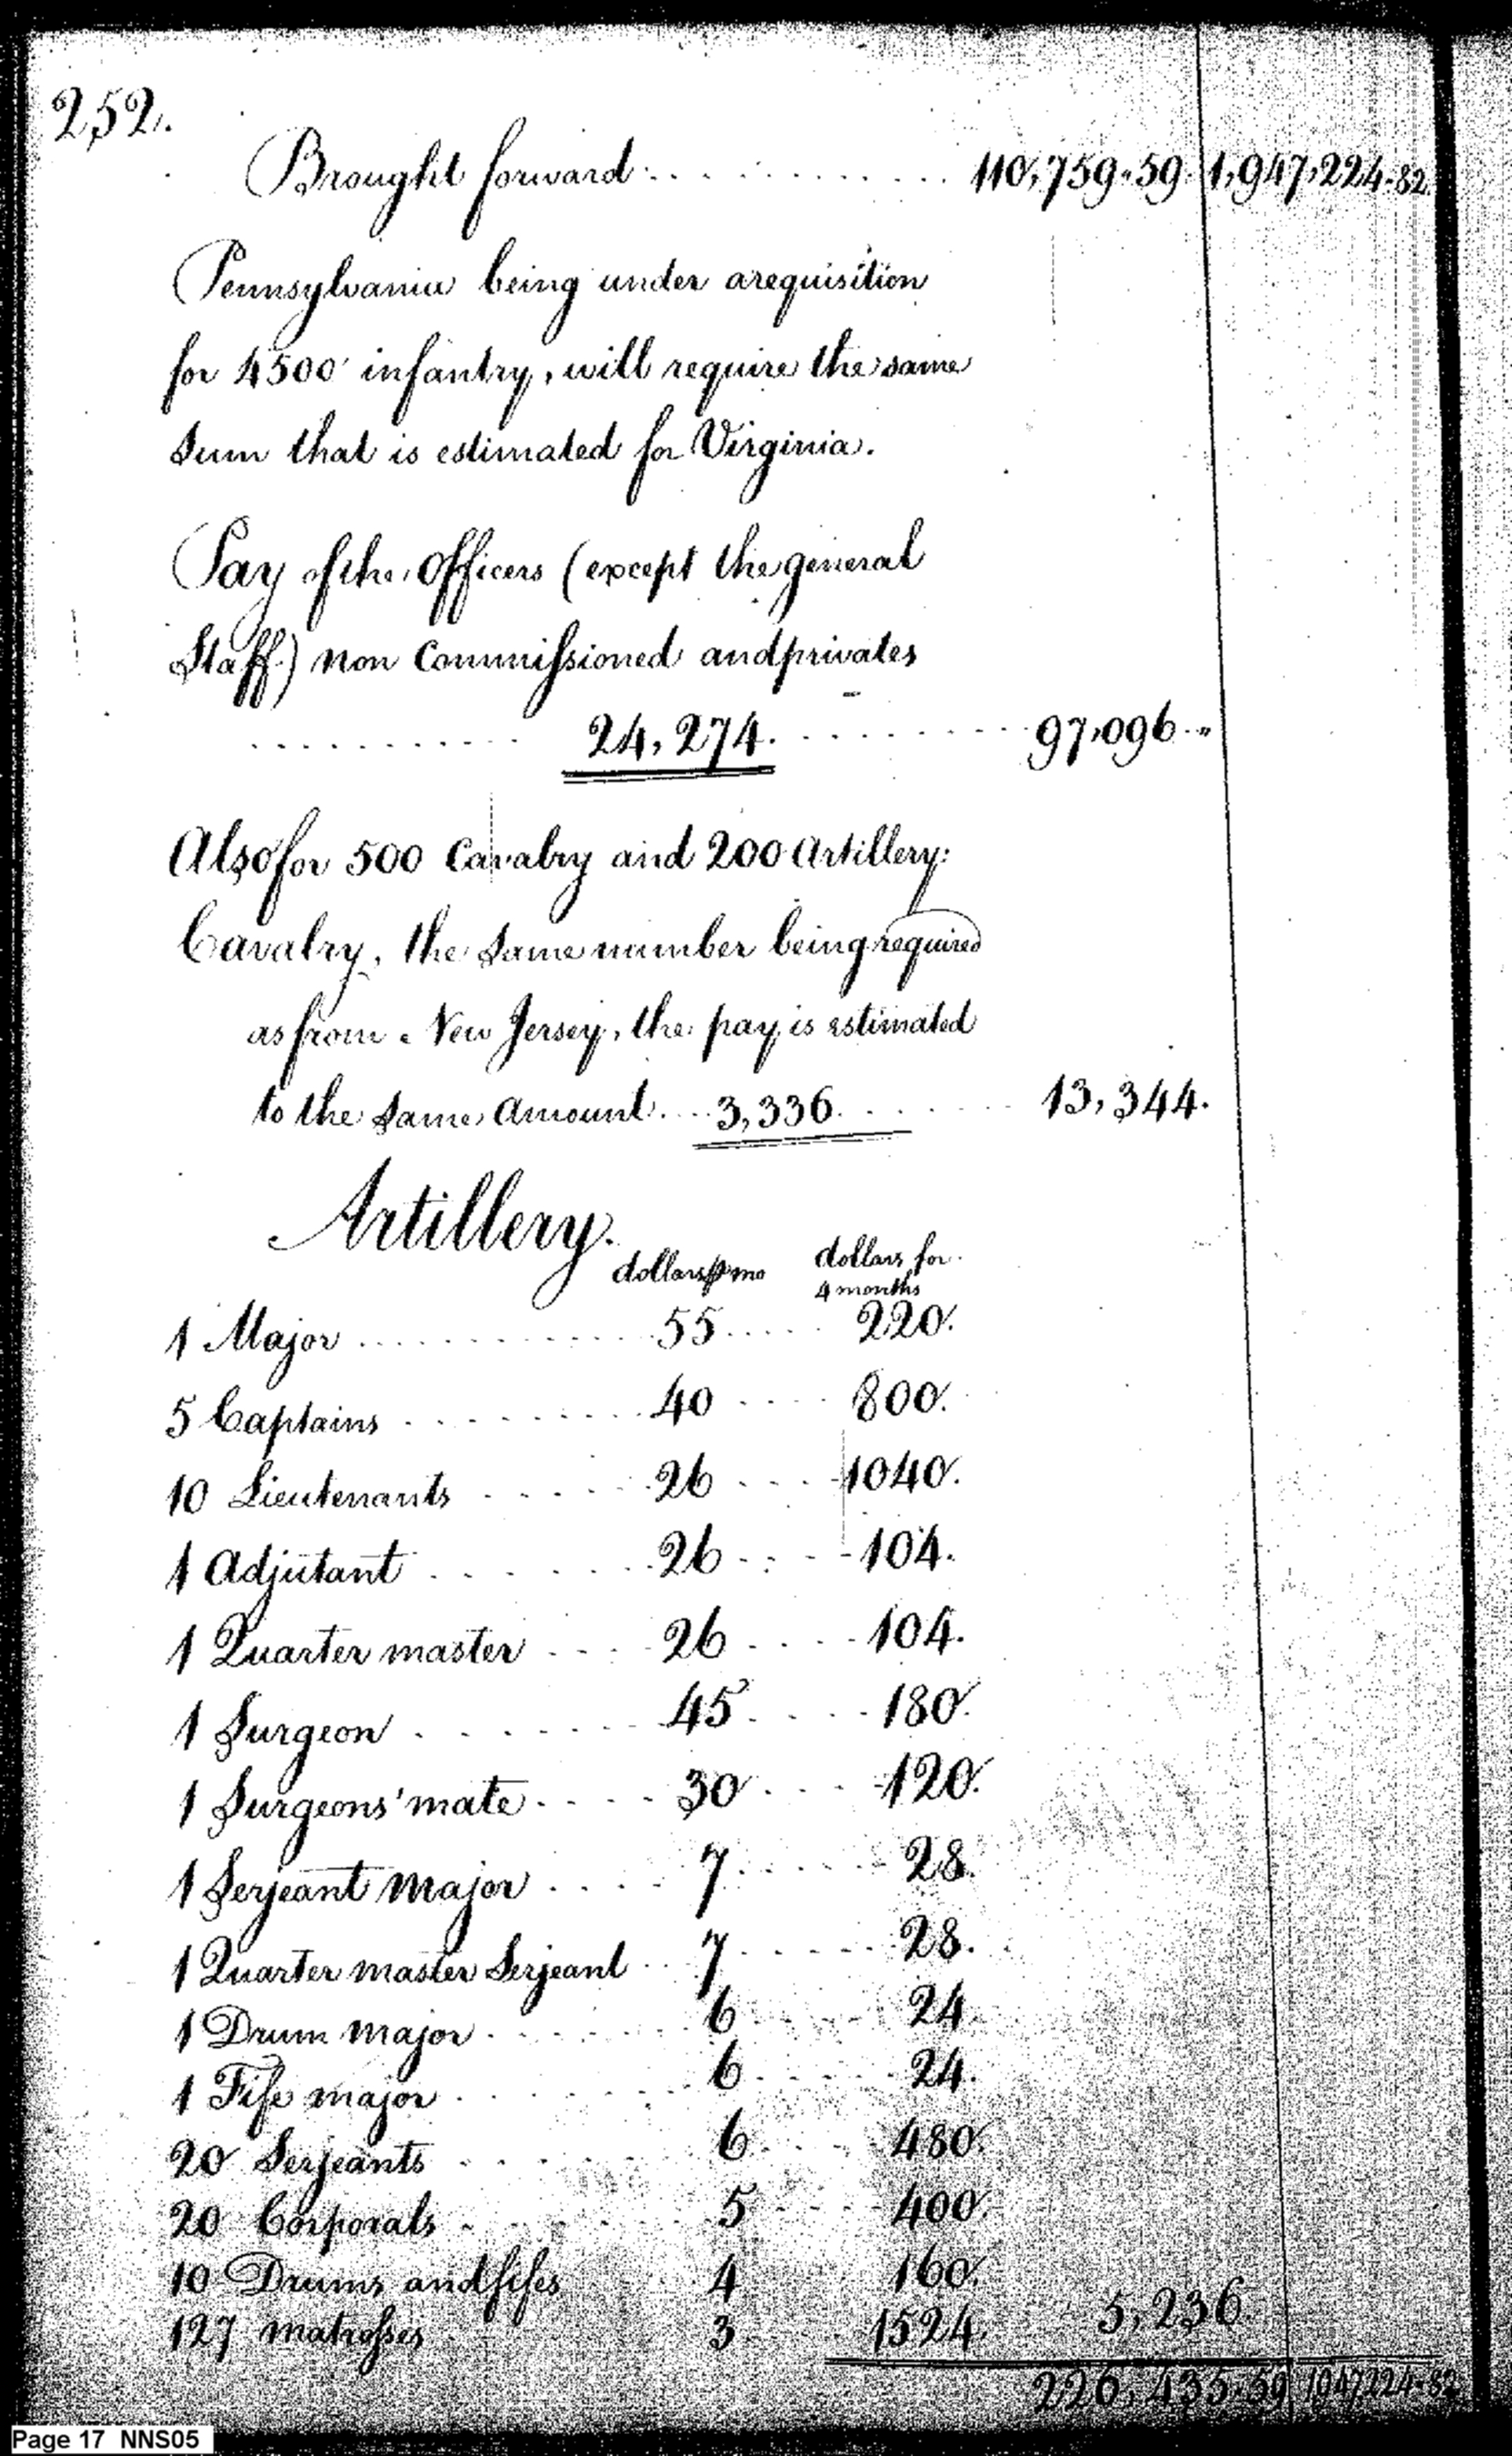 252.
Brought forward . . . . . . . . . . . . 110,759.59 1,947,224.82
Pennsylvania being under a requisition
for 4500 infantry, will require the same
Sum that is estimated for Virginia.
Pay of the Officers (except the general
Staff) non Commissioned and privates
. . . . . . . . . . . 24,274. . . . . . . . . 97,096 . "
Also for 500 Cavalry and 200 Artillery:
Cavalry, the same number being required
as from New Jersey, the pay is estimated
to the same amount . . . 3,336. . . . . . . 13,344.
Artillery.
dollars ⅌ mo dollars for
4 months
1 Major . . . . . . . . . . . . 55 . . . . . 220.
5 Captains . . . . . . . . . 40 . . . . 800.
10 Lieutenants . . . . . . 26 . . . . 1040.
1 Adjutant . . . . . . . . 26 . . . . 104.
1 Quarter master . . . . 26 . . . . 104.
1 Surgeon . . . . . . . 45 . . . . 180.
1 Surgeons' mate . . . . 30 . . . . 120.
1 Serjeant Major . . . . 7 . . . . . 28.
1 Quarter master Serjeant . . 7 . . . . . 28.
1 Drum Major . . . . . . . 6 . . . . 24
1 Fife major . . . . . . . 6 . . . . 24.
20 Serjeants . . . . . . 6 . . . . 480.
20 Corporals . . . . . . 5 . . . . 400.
10 Drums and fifes 4 160.
127 matrosses 3 1524. 5,236.
226,435.59 1047,224.82
Page 17 NNS05